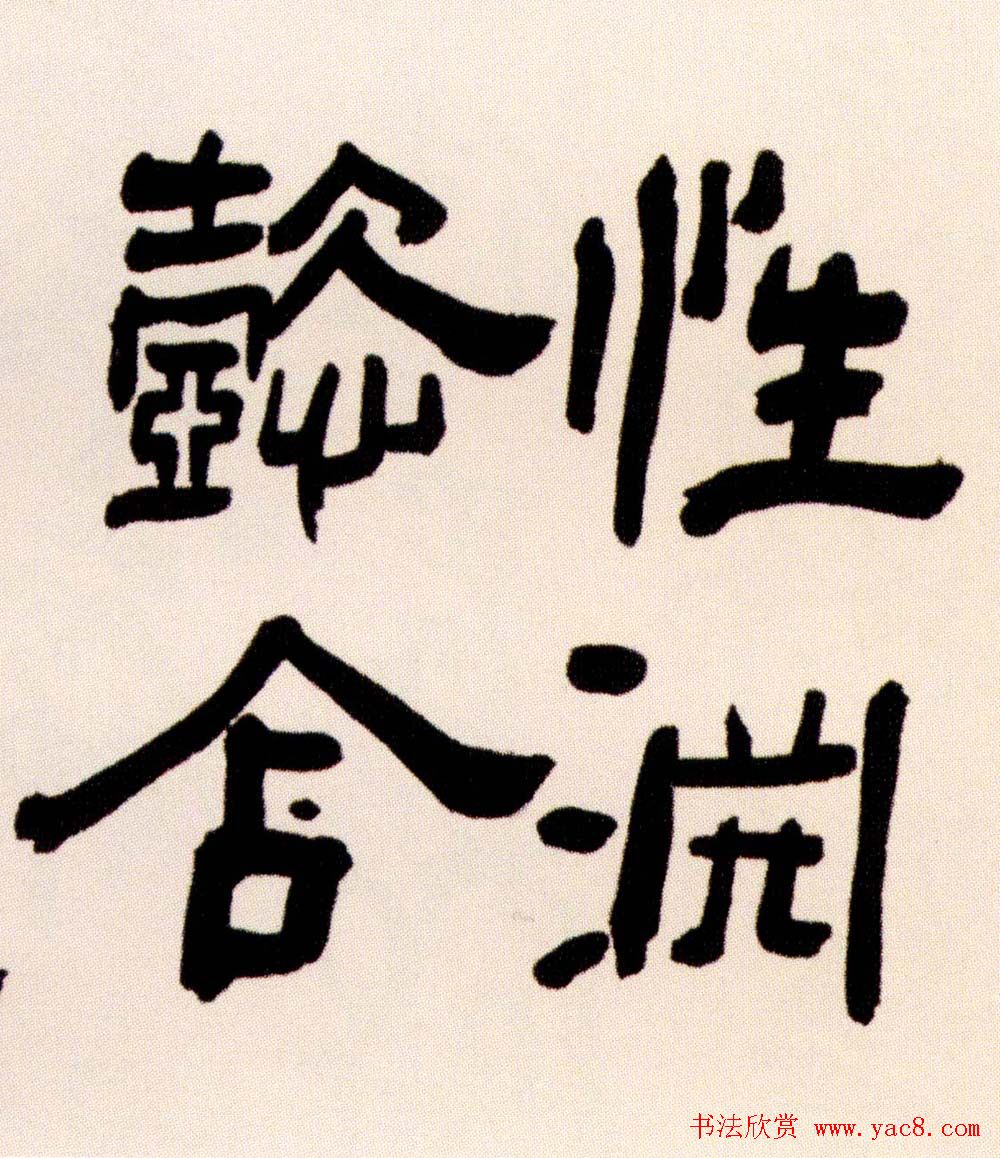 性淵
懿含
书法欣赏 www.yac8.com